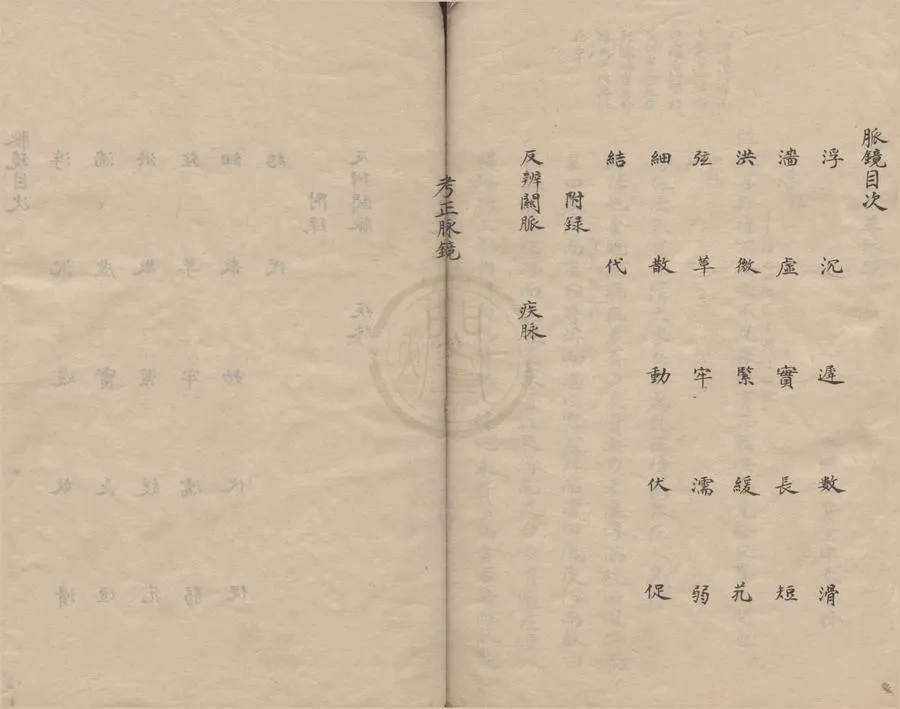 脈鏡目次
浮 沉 遲 數 滑
濇 虛 實 長 短
洪 微 緊 緩 芤
弦 革 牢 濡 弱
細 散 動 伏 促
結 代
附録
反辨關脈 疾脉
考正脉鏡